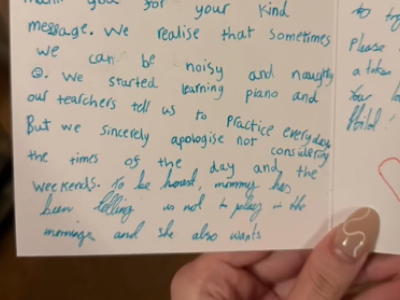 thank you for your kind
message. We realise that sometimes
we can be noisy and naughty
☹. We started learning piano and
our tearchers tell us to practice everyday.
But we sincerely apologise not considering
the times of the day and the
weekends. To be honest, mommy has
been telling us not to play in the
mornings and she also wants
to try
Please
a token
Your